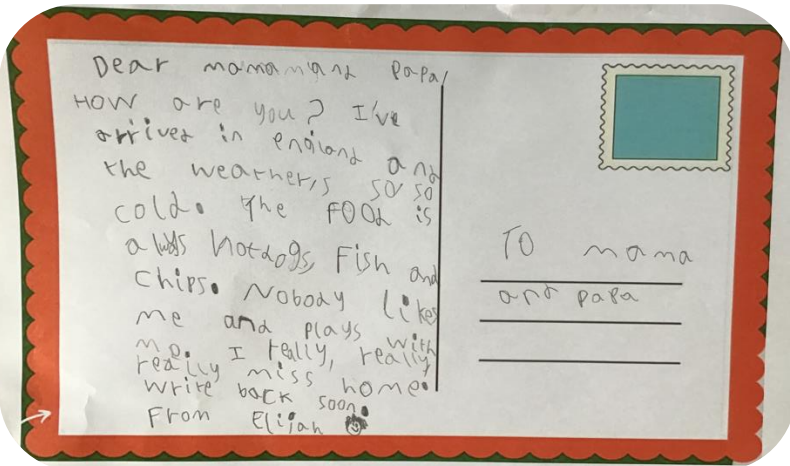 Dear mamam and Papa,
How are you? I've
arrived in england and
the weather is so so
cold. The FOOd is
always hotdogs, Fish and
Chips. Nobody likes
me and plays with
me. I really, really
really miss home.
write back soon.
From Elijah
TO mama
and papa